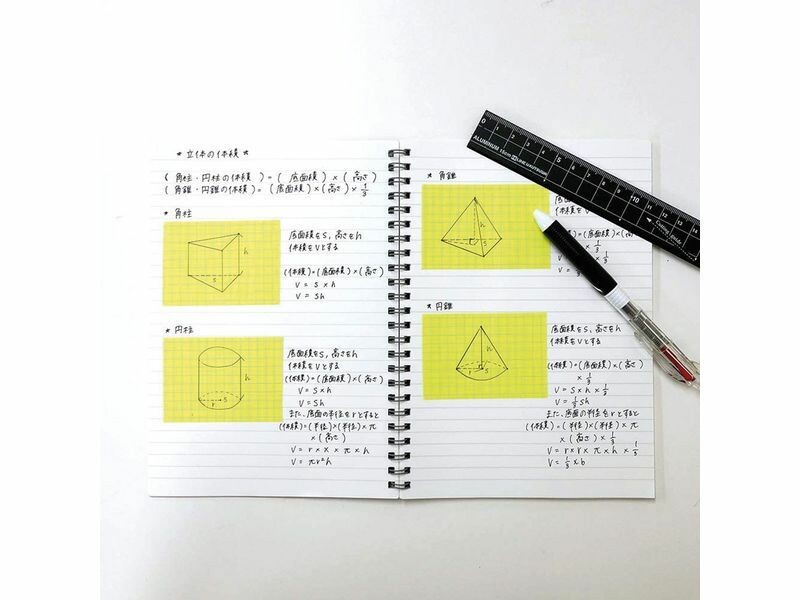 * 立体の体積 *
( 角柱・円柱の体積 ) = ( 底面積 ) × ( 高さ )
( 角錐・円錐の体積 ) = ( 底面積 ) × ( 高さ ) × 1/3
* 角柱
h
S
底面積をS, 高さをh
体積をVとする
(体積) = (底面積) × (高さ)
V = S × h
V = Sh
* 円柱
h
r
S
底面積をS, 高さをh
体積をVとする
(体積) = (底面積) × (高さ)
V = S × h
V = Sh
また、底面の半径をrとすると
(体積) = (半径) × (半径) × π
× (高さ)
V = r × r × π × h
V = πr²h
* 角錐
h
S
底面積
体積をV
) = (底面積) × (高さ)
× 1/3
× 1/3
V =
* 円錐
h
r
底面積をS, 高さをh
体積をVとする
(体積) = (底面積) × (高さ)
× 1/3
V = S × h × 1/3
V = 1/3 Sh
また、底面の半径をrとすると
(体積) = (半径) × (半径) × π
× (高さ) × 1/3
V = r × r × π × h × 1/3
V = 1/3 x b
0 5 10 11 12 13 14
ALUMINUM 15cm